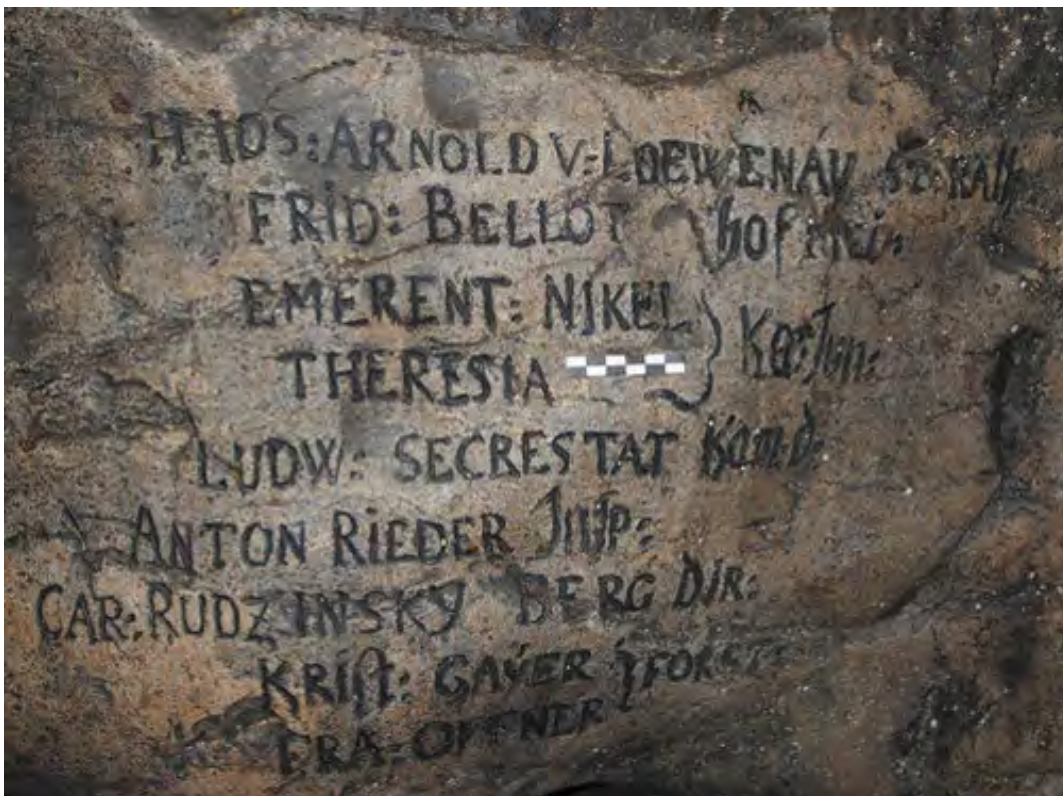 H: IOS: ARNOLD V: LOEWENAU
FRID: BELLOT hofmei:
EMERENT: NIKEL
THERESIA Ka: Jun:
LUDW: SECRESTAT Kam.d.
ANTON RIEDER Insp:
CAR: RUDZINSKY BERG DIR:
KRIST: GAÿER
FRA: OFFNER